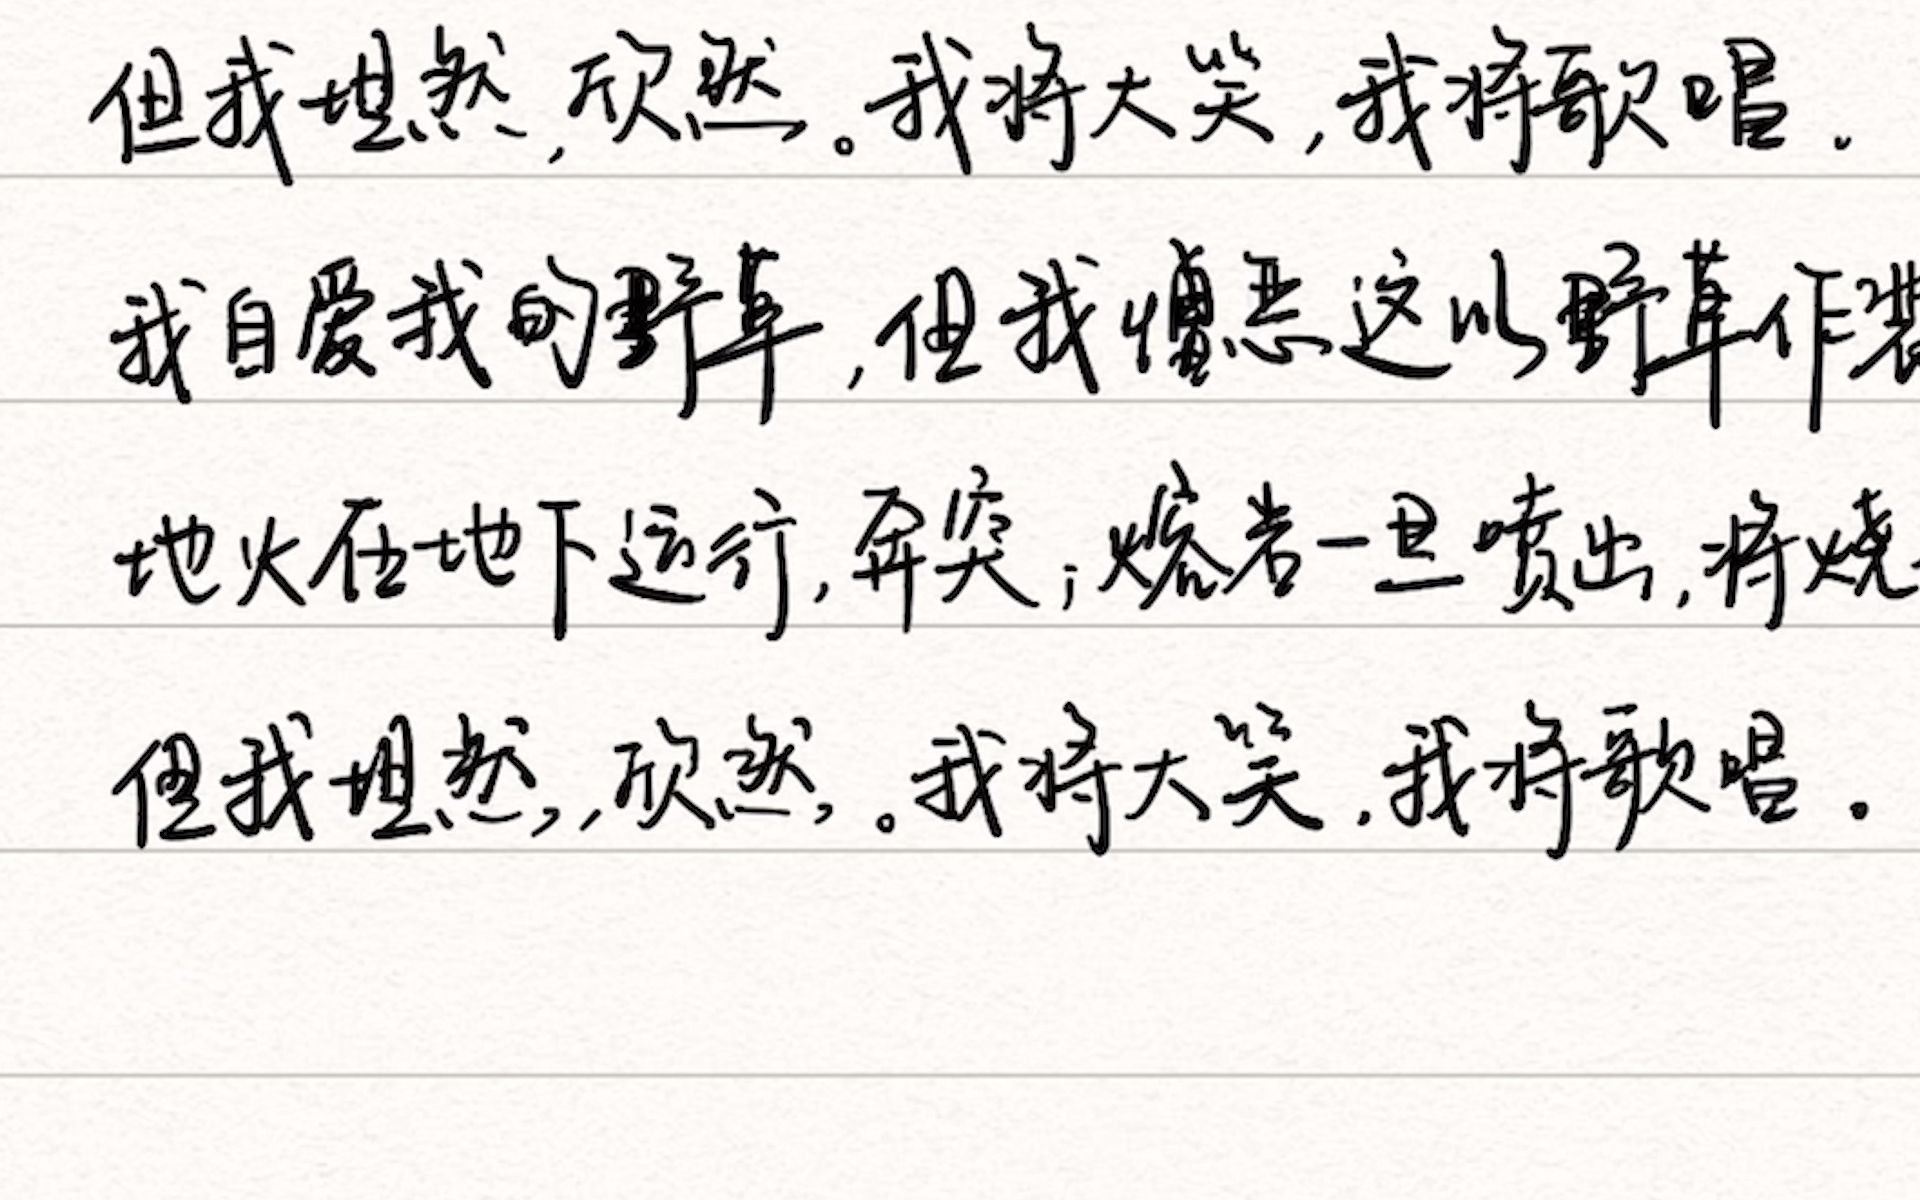 但我坦然,欣然。我将大笑,我将歌唱.
我自爱我的野草,但我憎恶这以野草作装
地火在地下运行,奔突;熔岩一旦喷出,将烧
但我坦然,,欣然,。我将大笑,我将歌唱.